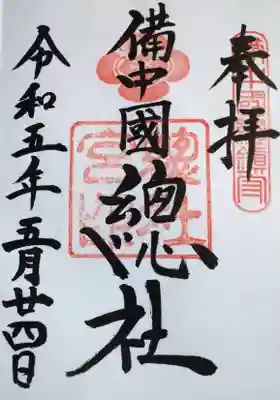 奉拝
備中國總社
令和五年五月廿四日